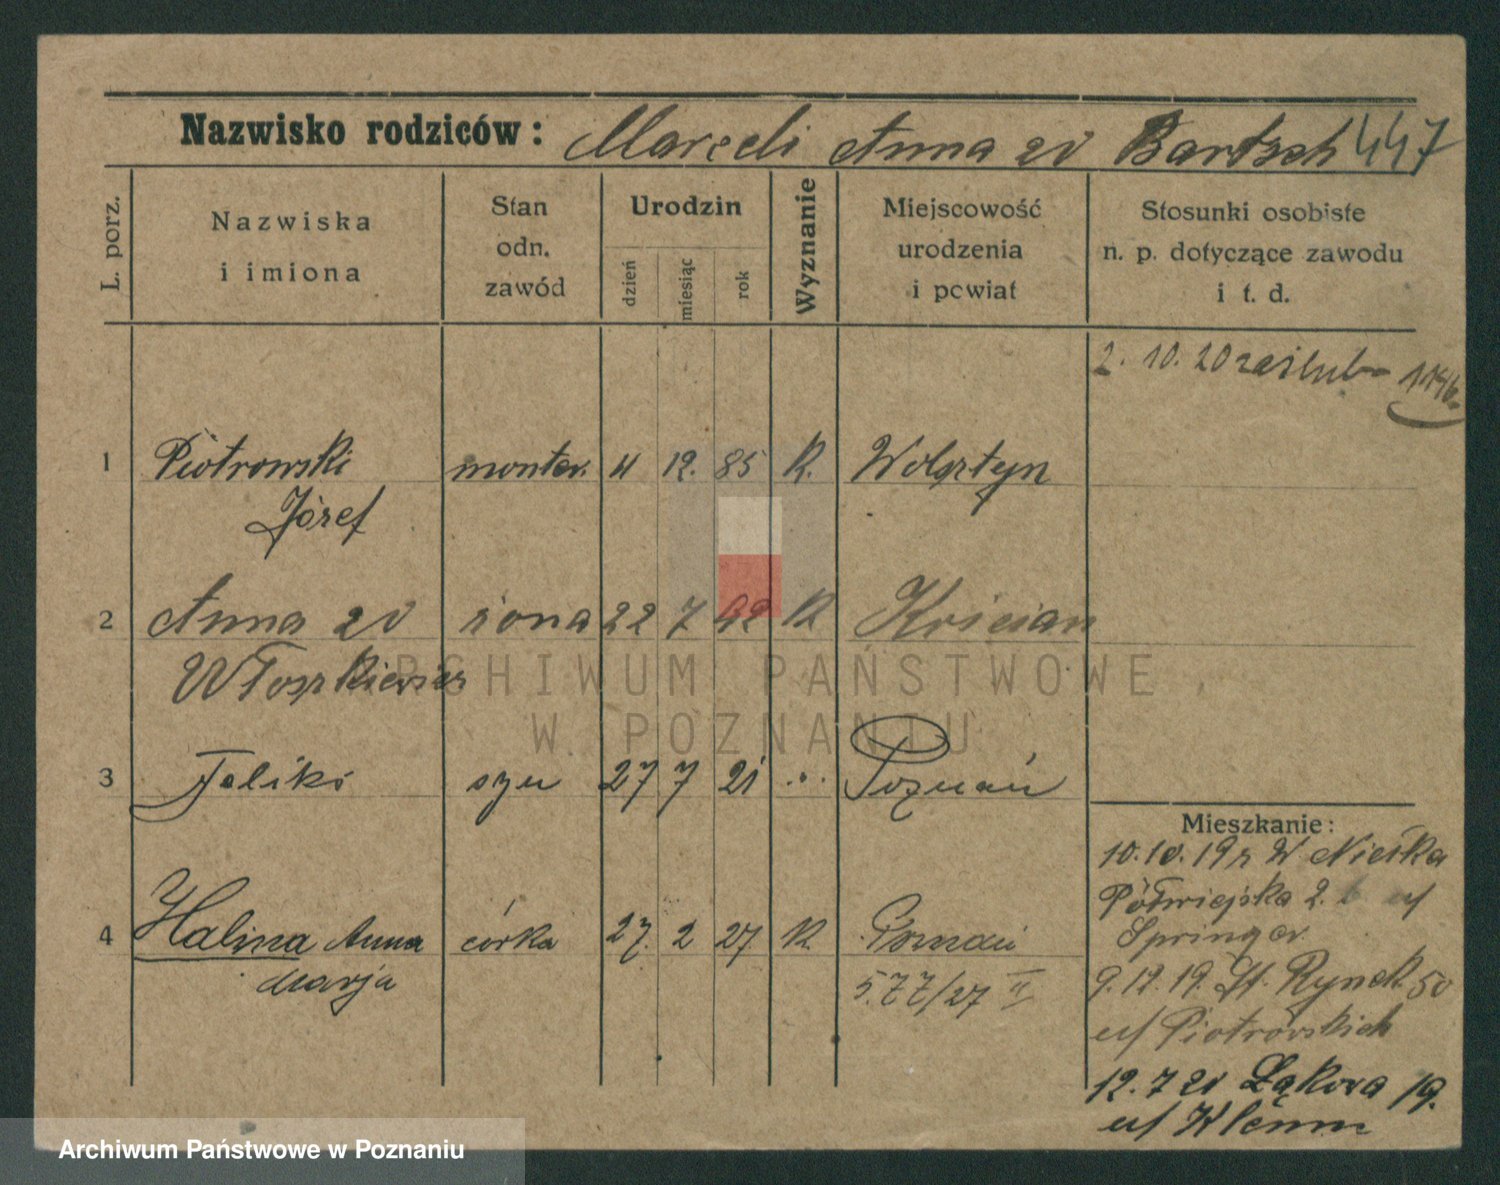 Nazwisko rodziców: Marceli Anna zd Bartsch 447
L. porz.
Nazwiska
i imiona
Stan
odn.
zawód
Urodzin
dzień
miesiąc
rok
Wyznanie
Miejscowość
urodzenia
i powiat
Stosunki osobiste
n. p. dotyczące zawodu
i t. d.
2. 10. 20 zaślub
1 Piotrowski monter. 4 12. 85 K. Wolsztyn
Józef
2 Anna zd żona 22 7 92 K Kościan
Włoszkiewicz
3 Feliks syn 27 7 21 Poznań
4 Halina Anna córka 27. 2 27 K Poznań
Marja 577/27 II
Mieszkanie:
10. 10. 19 r W Nieśka
Półwiejska 2. u/
Springer
9. 12. 19. St. Rynek 50
u/ Piotrowskich
12. 7 20 Łąkowa 19.
u/ Klemm
ARCHIWUM PAŃSTWOWE
W POZNANIU
Archiwum Państwowe w Poznaniu